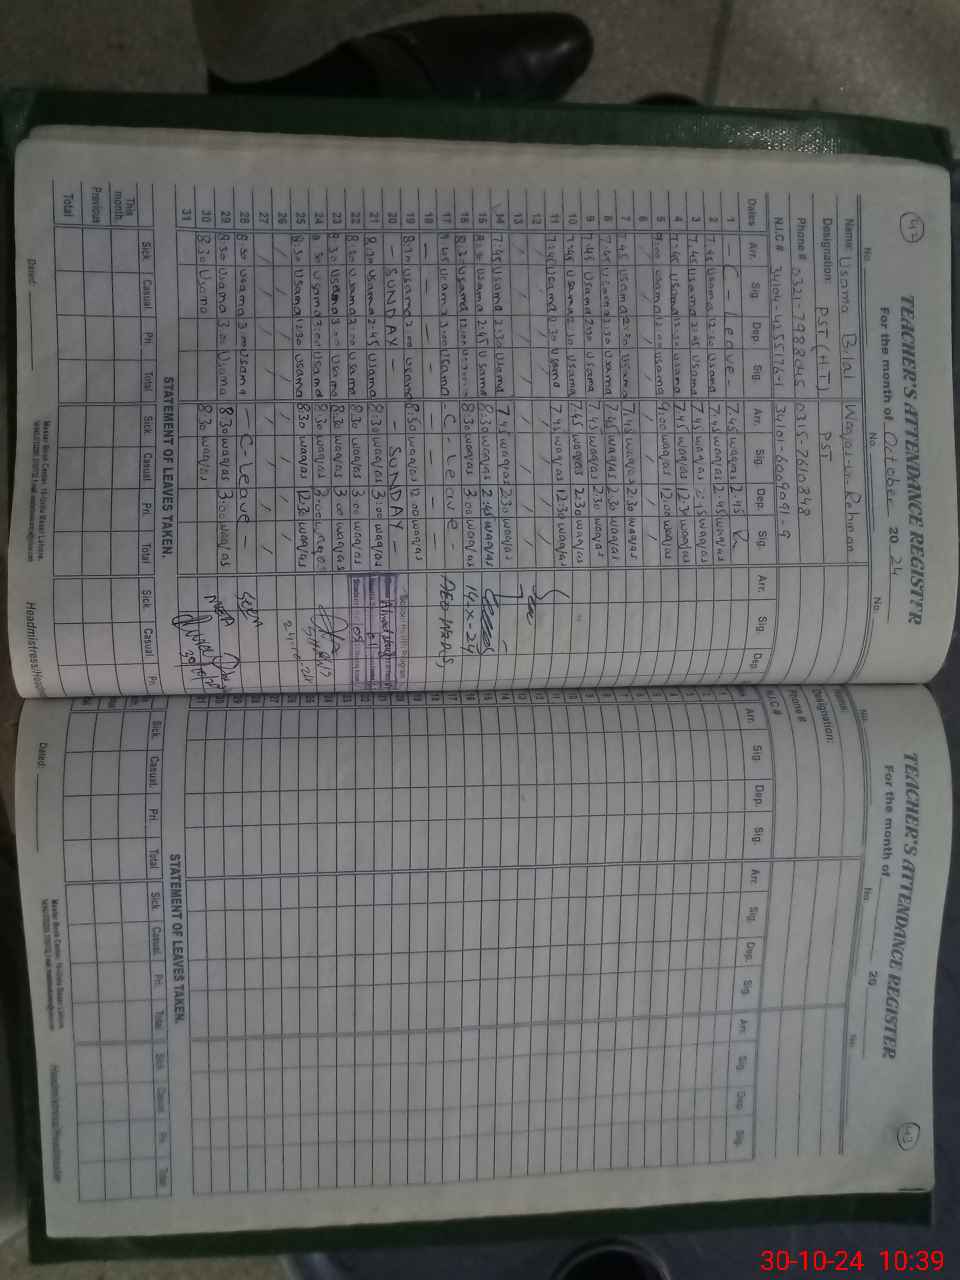 47
TEACHER'S ATTENDANCE REGISTER
For the month of October 2024
No. No. No.
Name: Usama Bilal Waqar-ur-Rehman
Designation: PST (HT) PST
Phone # 0321-7988045 0315-7610848
N.I.C #
Dates Arr. Sig. Dep. Sig. Arr. Sig. Dep. Sig. Arr. Sig. Dep.
1 - C - Leave - 7.45 waqas 2.45
2 7.45 Usama 12.30 Usama 7.45 waqas 2.45 waqas
3 7.45 Usama 2.45 Usama 7.45 waqas 2.45 waqas
4 7.45 Usama 12.30 Usama 7.45 waqas 12.30 waqas
5 9.00 Usama 12.00 Usama 9.00 waqas 12.00 waqas
6
7 7.45 Usama 2.30 Usama 7.45 waqas 2.30 waqas
8 7.45 Usama 2.30 Usama 7.45 waqas 2.30 waqas
9 7.45 Usama 2.30 Usama 7.45 waqas 2.30 waqas
10 7.45 Usama 2.30 Usama 7.45 waqas 2.30 waqas
11 7.45 Usama 12.30 Usama 7.45 waqas 12.30 waqas
12
13
14 7.45 Usama 2.30 Usama 7.45 waqas 2.30 waqas
15 8.30 Usama 2.45 Usama 8.30 waqas 2.45 waqas
16 8.30 Usama 3.00 Usama 8.30 waqas 3.00 waqas 14-X-24
17 8.45 Usama 3.00 Usama - C - Leave -
18 - - - - - -
19 8.30 Usama 12.00 Usama 8.30 waqas 12.00 waqas
20 - SUNDAY - - SUNDAY -
21 8.30 Usama 2.45 Usama 8.30 waqas 3.00 waqas
22 8.30 Usama 3.00 Usama 8.30 waqas 3.00 waqas
23 8.30 Usama 3.00 Usama 8.30 waqas 3.00 waqas
24 8.30 Usama 3.00 Usama 8.30 waqas 3.00 waqas
25 8.30 Usama 12.30 Usama 8.30 waqas 12.30 waqas
26
27
28 8.30 Usama 3.00 Usama - C - Leave -
29 8.30 Usama 3.00 Usama 8.30 waqas 3.00 waqas
30 8.30 Usama 8.30 waqas
31
STATEMENT OF LEAVES TAKEN.
Sick Casual Pri. Total Sick Casual Pri. Total Sick Casual Pri.
This month
Previous
Total
Dated:
Headmistress/Head
TEACHER'S ATTENDANCE REGISTER
For the month of 20
No. No. No.
Name:
Designation:
Phone #
N.I.C #
Arr. Sig. Dep. Sig. Arr. Sig. Dep. Sig. Arr. Sig. Dep. Sig.
STATEMENT OF LEAVES TAKEN.
Sick Casual Pri. Total Sick Casual Pri. Total Sick Casual Pri. Total
Dated:
30-10-24 10:39